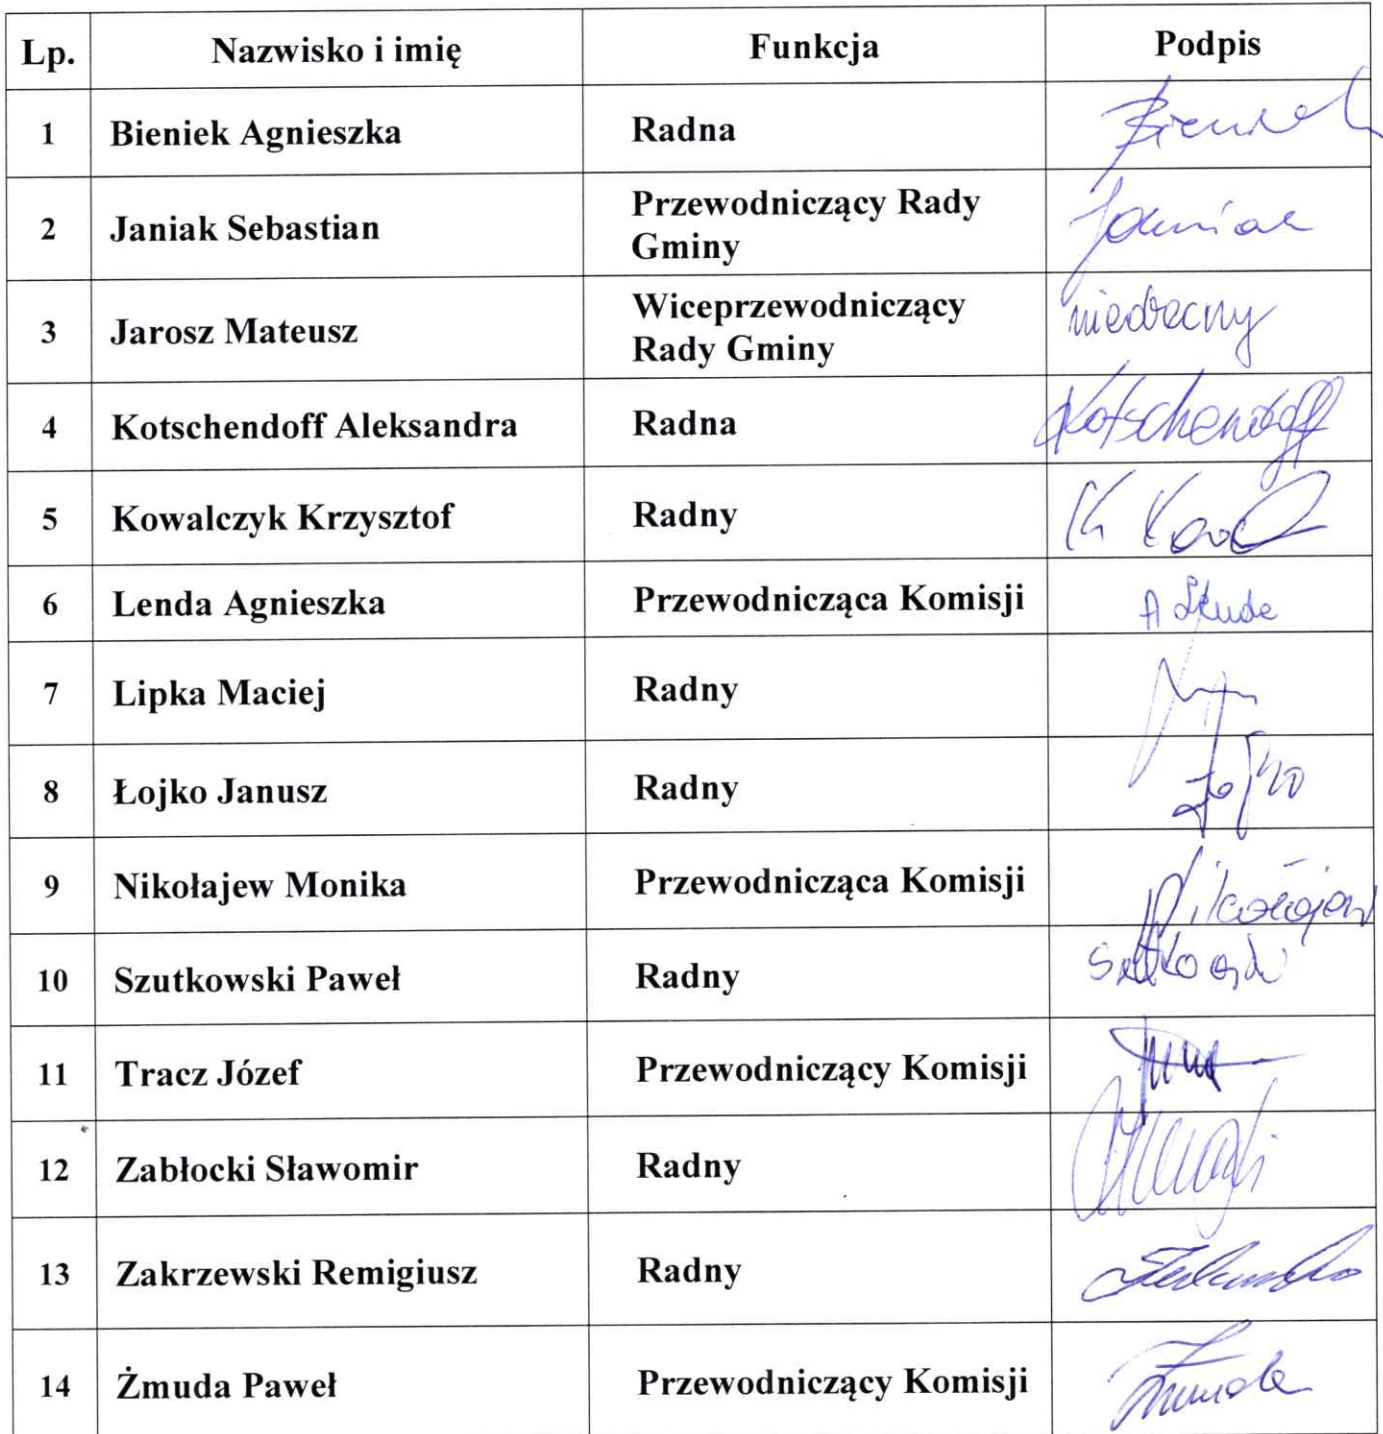 Lp. Nazwisko i imię Funkcja Podpis
1 Bieniek Agnieszka Radna Bieniek
2 Janiak Sebastian Przewodniczący Rady Gminy Janiak
3 Jarosz Mateusz Wiceprzewodniczący Rady Gminy nieobecny
4 Kotschendoff Aleksandra Radna Kotschendoff
5 Kowalczyk Krzysztof Radny
6 Lenda Agnieszka Przewodnicząca Komisji A Lenda
7 Lipka Maciej Radny
8 Łojko Janusz Radny Łojko
9 Nikołajew Monika Przewodnicząca Komisji Nikołajew
10 Szutkowski Paweł Radny
11 Tracz Józef Przewodniczący Komisji
12 Zabłocki Sławomir Radny
13 Zakrzewski Remigiusz Radny
14 Żmuda Paweł Przewodniczący Komisji Żmuda